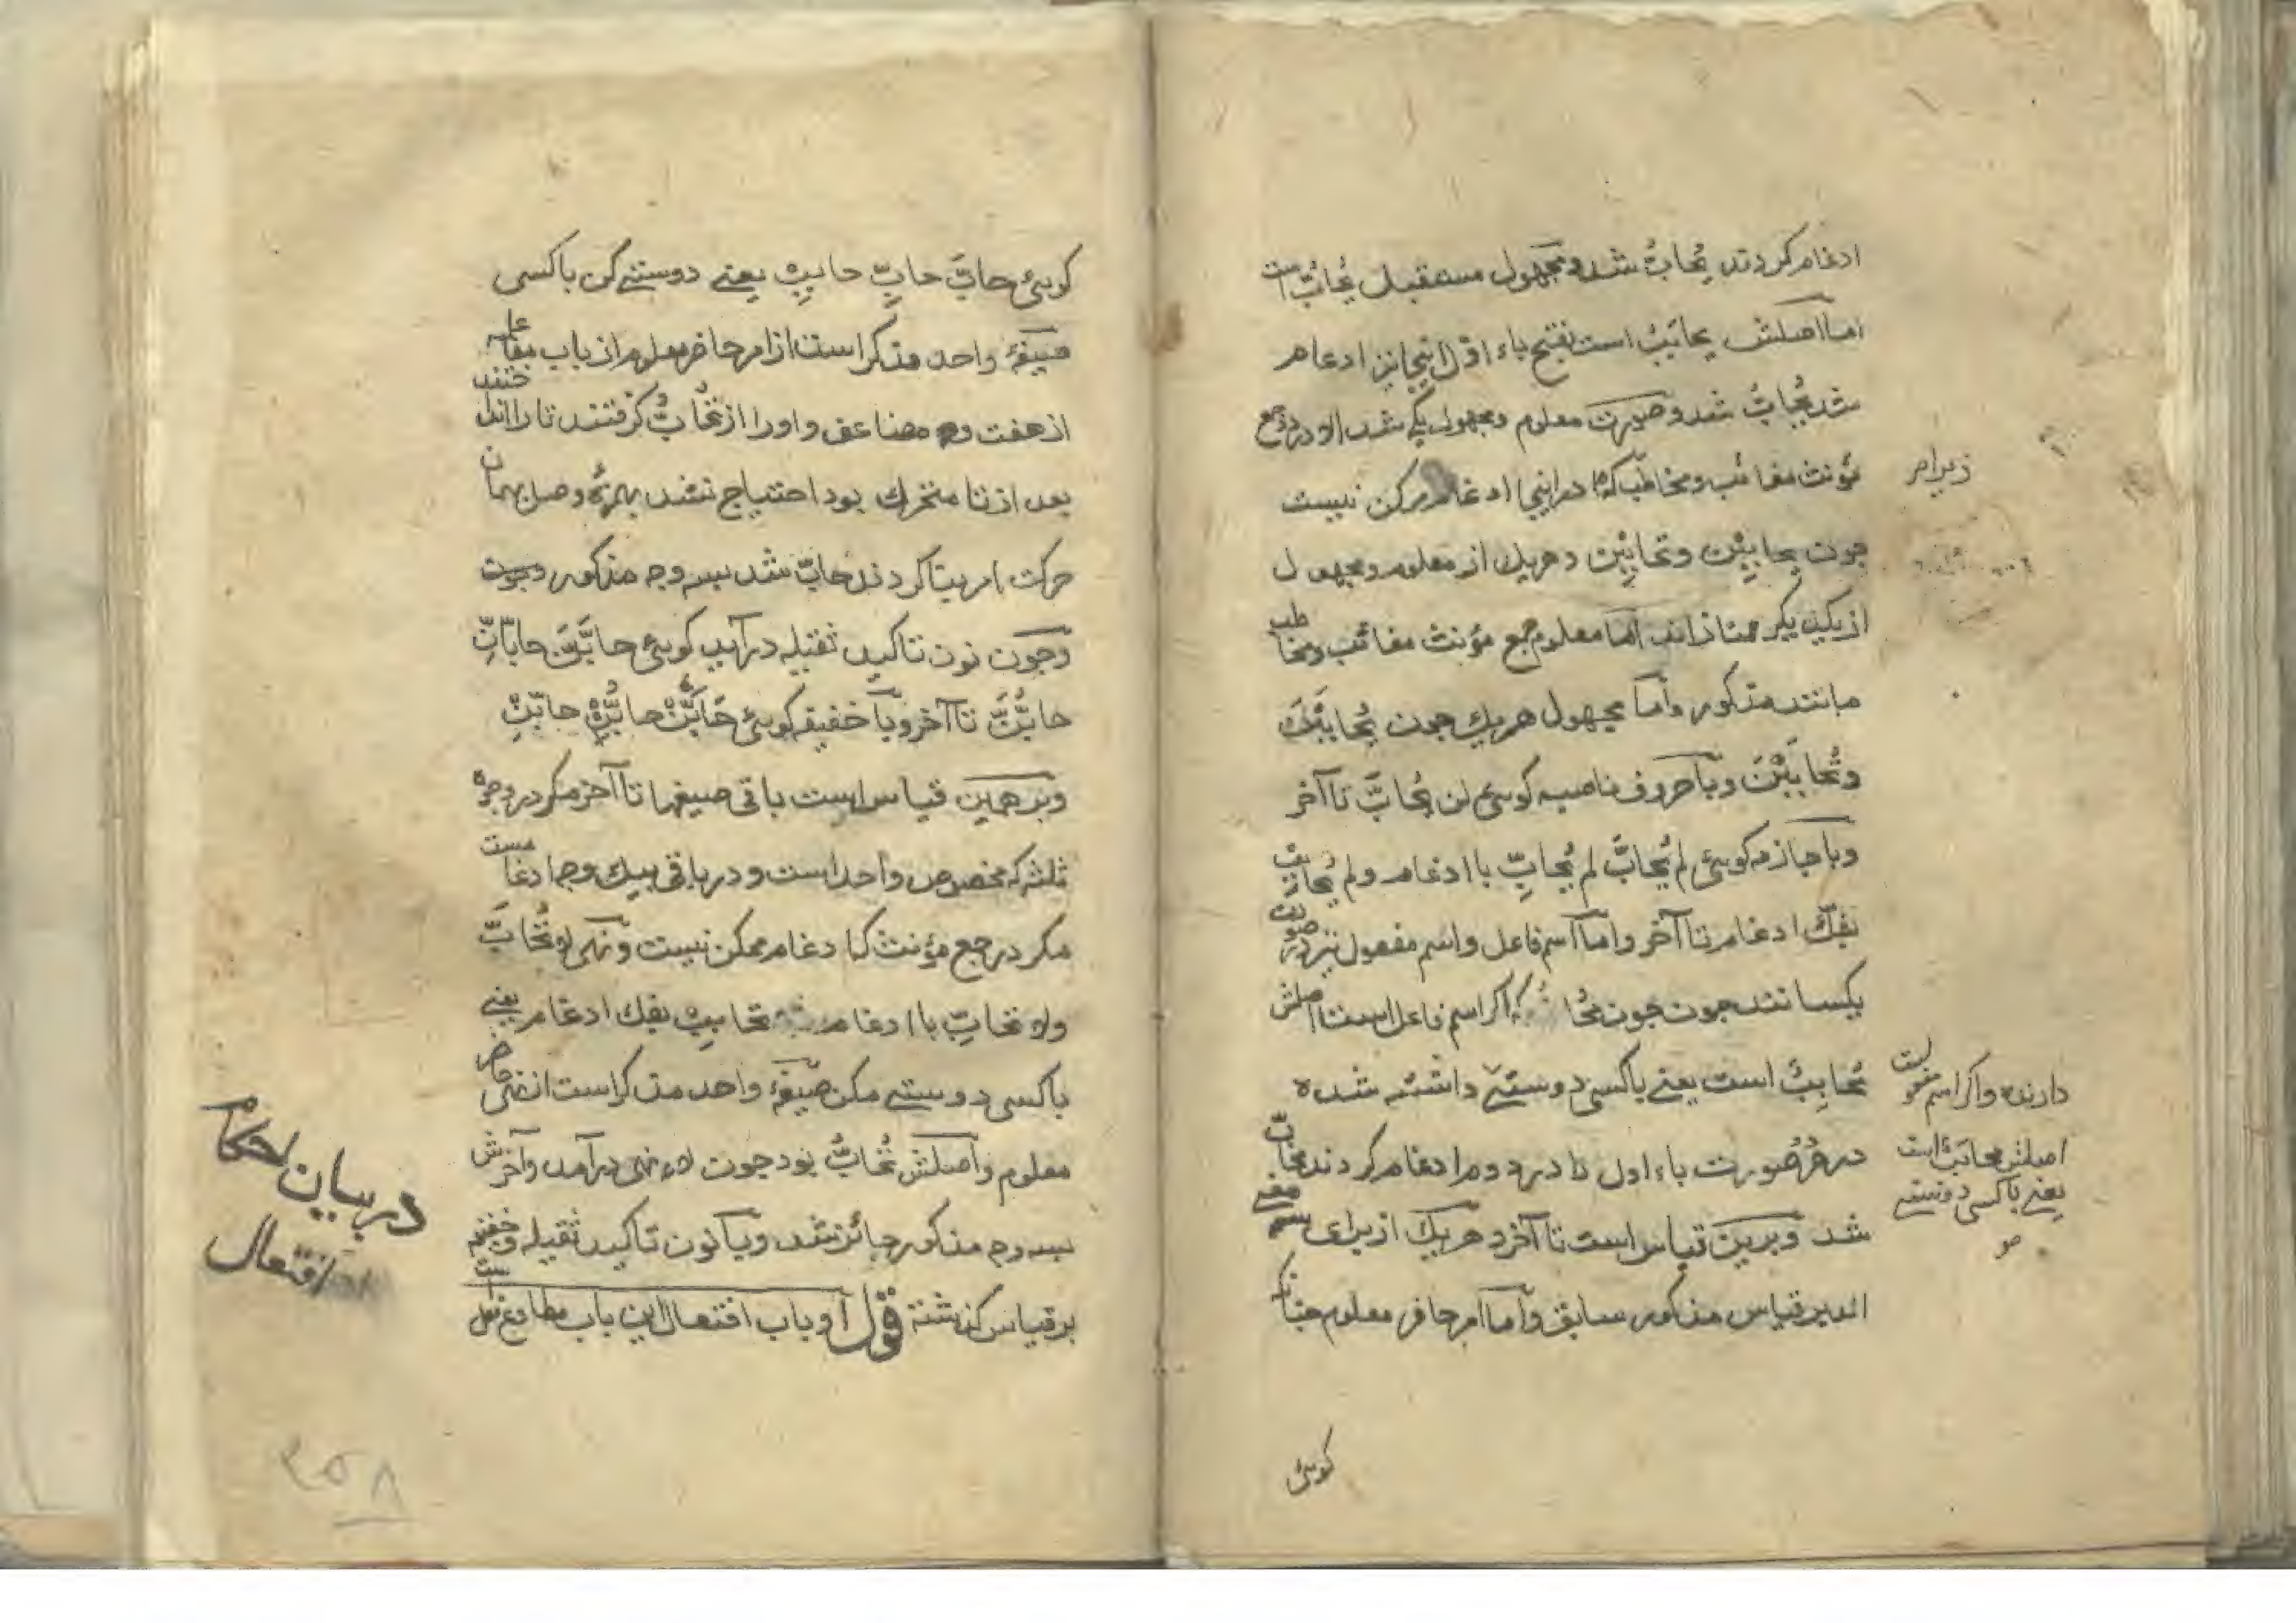 ادغام کردند یُحابُّ شد و مجهول مستقبل یُحابُّ است
اما اصلش یحابَبُ است بفتح باء اوّل اینجا نیز ادغام
شد یُحابُّ شد و صورت معلوم و مجهول یکی شد الا در جمع
مؤنث مغائب و مخاطب که در اینجا ادغام ممکن نیست
زیرا مر
چون یحابِبْنَ و تحابِبْنَ و هریک از معلوم و مجهول
از یکدیکر ممتاز اند اما معلوم جمع مؤنث مغائب و مخاطب
مانند مذکور و اما مجهول هریک چون یُحابَبْنَ
و تُحابَبْنَ و با حروف ناصبه کوبئ لن یُحابَّ تا آخر
و با جازمه کوبئ لم یُحابَّ لم یُحابِّ با ادغام و لم یُحابِبْ
بفکّ ادغام تا آخر و اما اسم فاعل و اسم مفعول نیز در صورت
یکسانند چون چون مُحا اکر اسم فاعل است اصلش
مُحابِبٌ است یعنے باکسی دوستئے داشته شده
دارنده و اکر اسم مفعولست
اصلش محابَبٌ است
یعنے باکسی دوستے
در هر صورت باء اول را در دوم ادغام کردند محابٌّ
شد و برین قیاس است تا آخر و هریک از برای
اند بر قیاس مذکور سابق و اما امر حاضر معلوم چنانکه
کوبئ
کوبئ حابَّ حابِّ حابِبْ یعنے دوستئے کن باکسی
صیغهٔ واحد مذکر است از امر حاضر معلوم از باب مفاعله
از هفت وجه مضاعف و او را از تُحابُّ کرفتند تا را انداختند
بعد از تا متحرک بود احتیاج نشد بهمزهٔ وصل بهمان
حرکت امر بنا کردند حابّ شد بسه وجه مذکور و چون
و چون نون تاکید ثقیله درآید کوبئ حابَّنَّ حابّانِّ
حابُّنَّ تا آخر و با خفیفه کوبئ حابَّنْ حابُّنْ حابِّنْ
و بر همین قیاس است باقی صیغها تا آخر مکر در وجوه
ثلثه که مخصوص واحد است و در باقی بیک وجه ادغامست
مکر در جمع مؤنث که ادغام ممکن نیست و نهی لا تُحابَّ
ولا تحابِّ با ادغام تحابِبْ بفک ادغام یعنے
باکسی دوستے مکن صیغهٔ واحد مذکر است از نهی حاضر
معلوم و اصلش تُحابُّ بود چون لاء نهی درآمد و آخرش
بسه وجه مذکور جائز شد و با نون تاکید ثقیله و خفیفه
بر قیاس کذشته قوله او باب افتعال این باب مطاوع فعل است
در بیان احکام
افتعال
۲۵۸